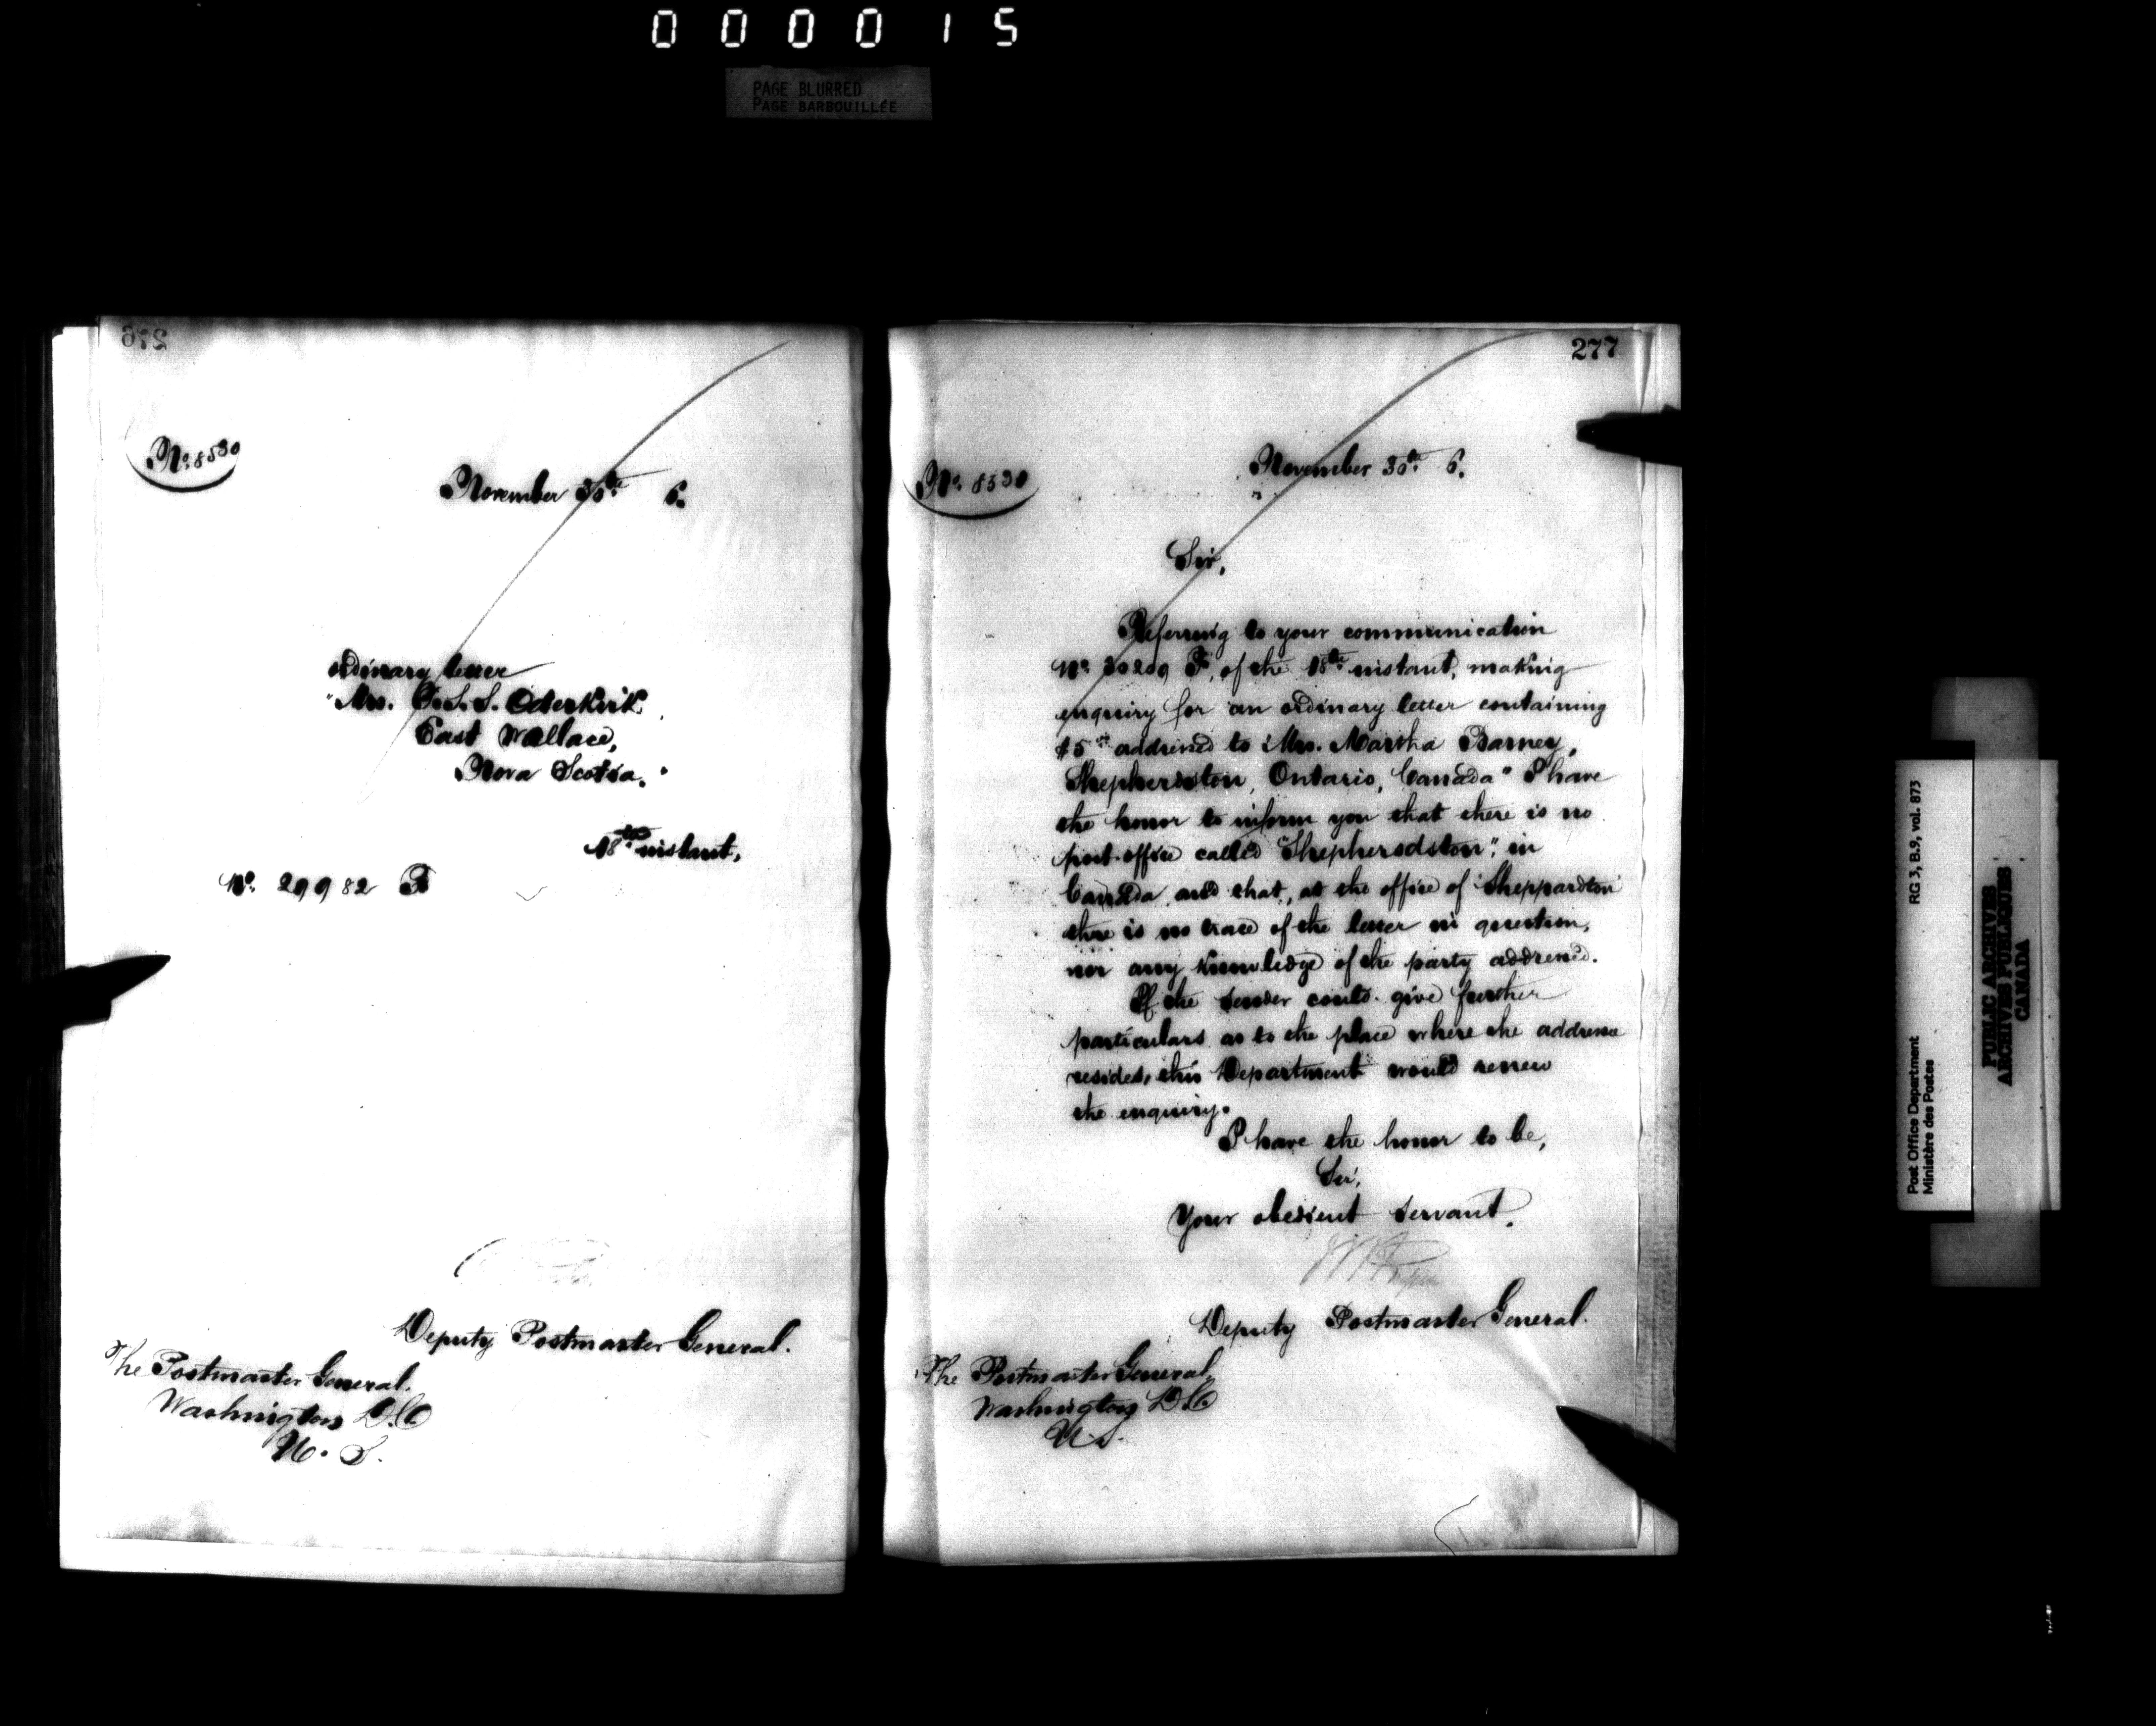 000015
PAGE BLURRED
PAGE BARBOUILLÉE
276
No. 8530
November 30th 6.
ordinary letter
"Mrs. O.S.S. Oderkirk.
East Wallace,
Nova Scotia."
18th instant,
No. 29982 F
Deputy Postmaster General.
The Postmaster General.
Washington D.C
U. S.
277
No. 8530
November 30th 6.
Sir,
Referring to your communication
No. 30209 F, of the 18th instant, making
enquiry for an ordinary letter containing
$5 addressed to Mrs. Martha Barney,
Shepherdston, Ontario, Canada" I have
the honor to inform you that there is no
post-office called "Shepherdston", in
Canada and that, at the office of "Sheppardton"
there is no trace of the letter in question,
nor any knowledge of the party addressed.
If the sender could give further
particulars as to the place where the addressee
resides, this Department would renew
the enquiry.
I have the honor to be,
Sir,
Your obedient servant,
Deputy Postmaster General.
The Postmaster General,
Washington D.C
U.S.
RG 3, B.9, vol. 873
Post Office Department
Ministère des Postes
PUBLIC ARCHIVES
ARCHIVES PUBLIQUES
CANADA